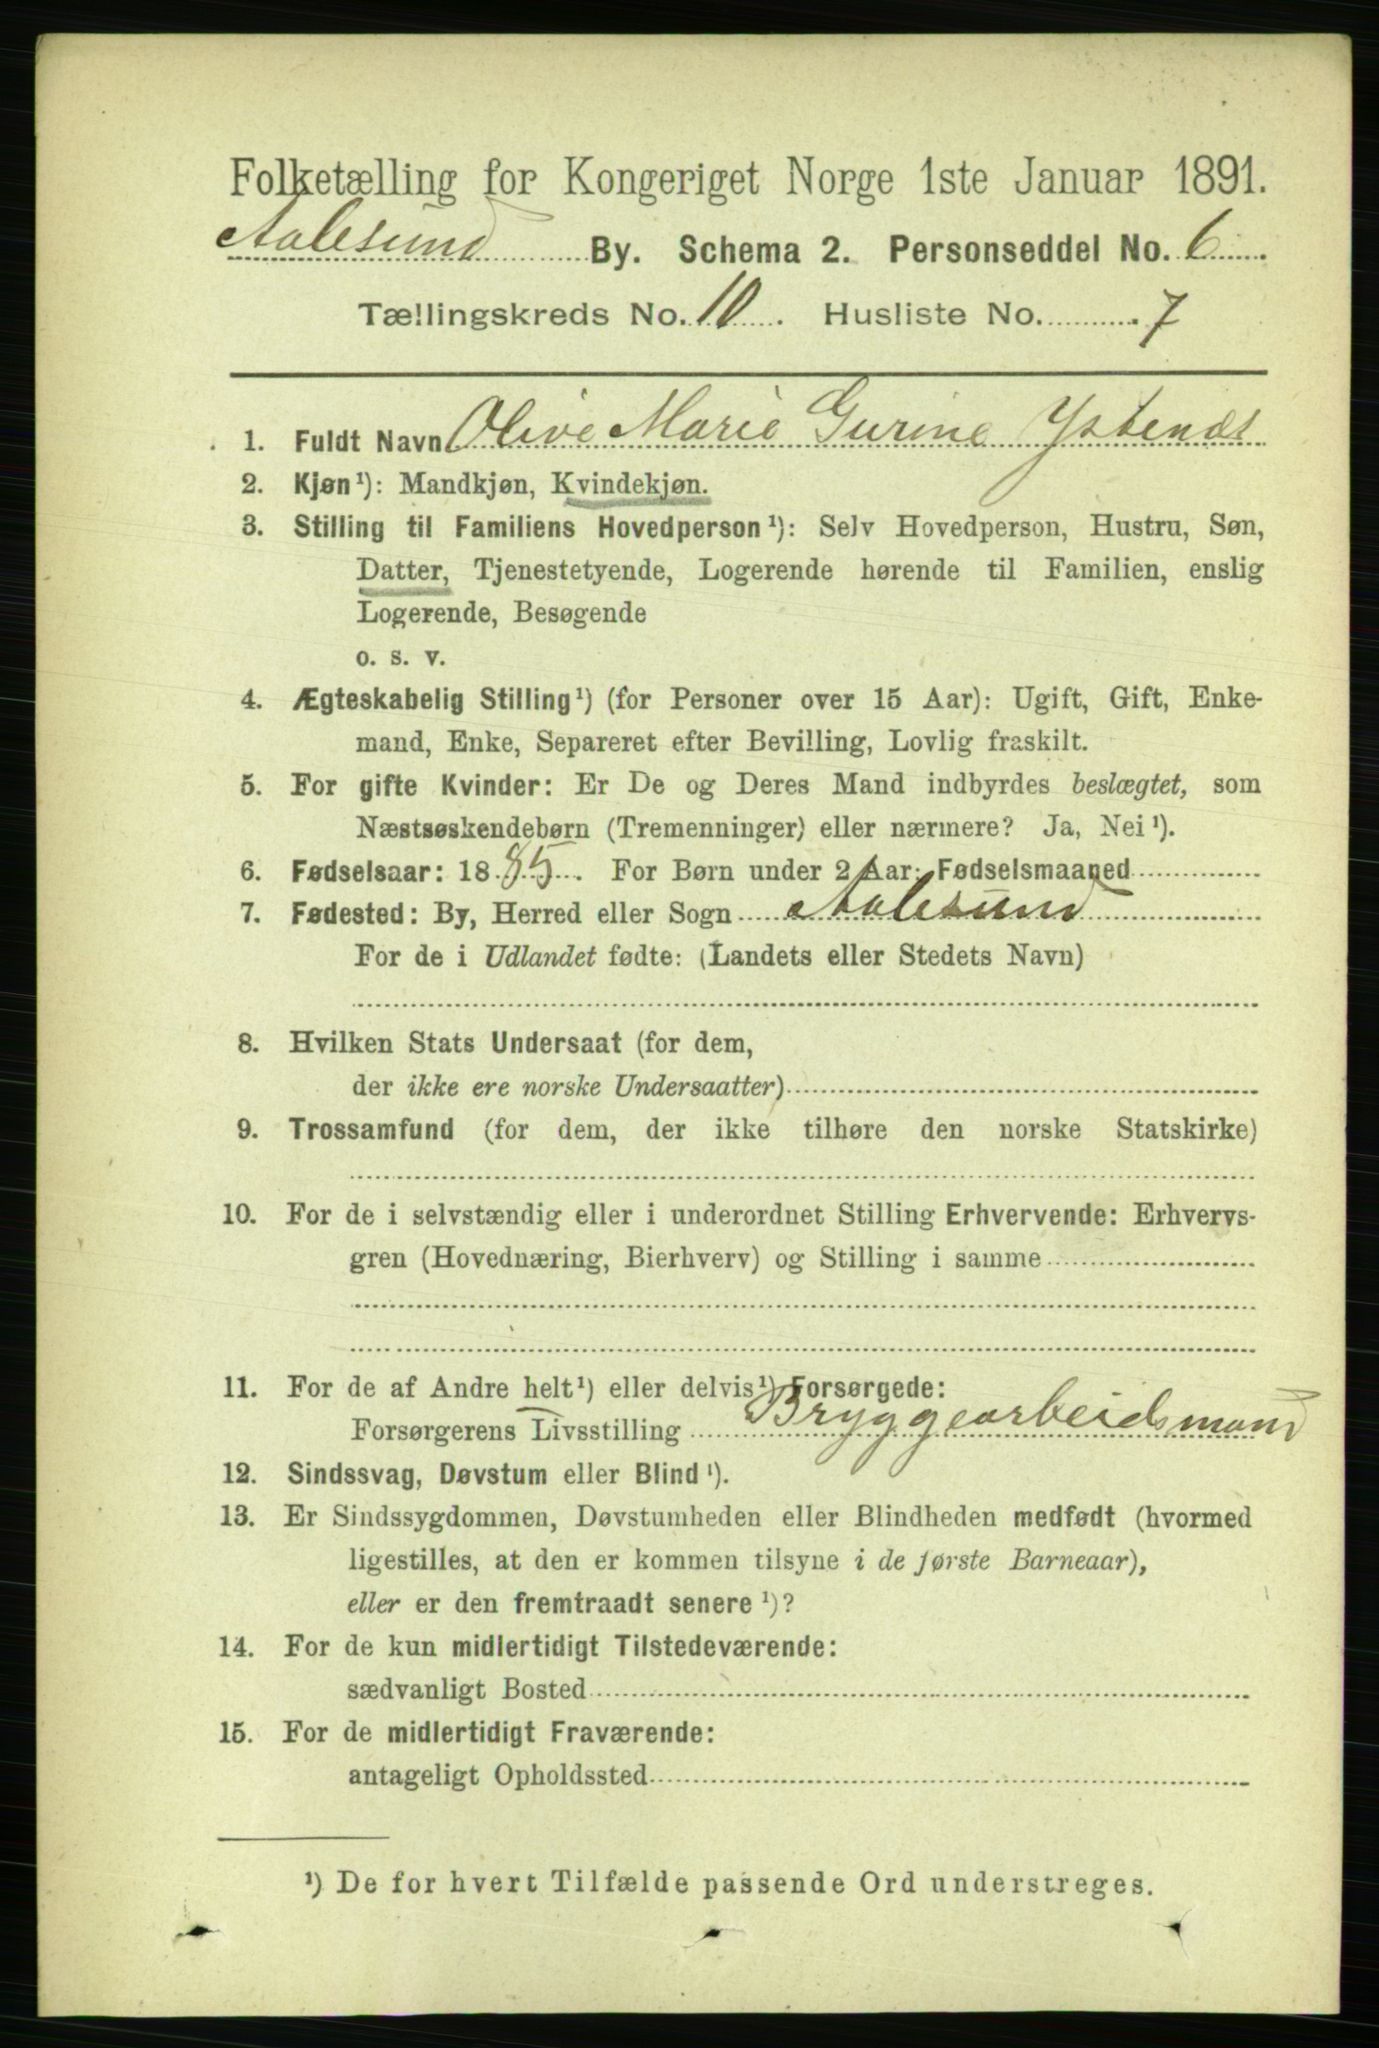 Folketælling for Kongeriget Norge 1ste Januar 1891.
Aalesund By. Schema 2. Personseddel No. 6
Tællingskreds No. 10. Husliste No. 7
1. Fuldt Navn Olive Marie Gurine Ystenæs
2. Kjøn¹): Mandkjøn, Kvindekjøn.
3. Stilling til Familiens Hovedperson¹): Selv Hovedperson, Hustru, Søn,
Datter, Tjenestetyende, Logerende hørende til Familien, enslig
Logerende, Besøgende
o. s. v.
4. Ægteskabelig Stilling¹) (for Personer over 15 Aar): Ugift, Gift, Enke-
mand, Enke, Separeret efter Bevilling, Lovlig fraskilt.
5. For gifte Kvinder: Er De og Deres Mand indbyrdes beslægtet, som
Næstsøskendebørn (Tremenninger) eller nærmere? Ja, Nei¹).
6. Fødselsaar: 1885. For Børn under 2 Aar: Fødselsmaaned
7. Fødested: By, Herred eller Sogn Aalesund
For de i Udlandet fødte: (Landets eller Stedets Navn)
8. Hvilken Stats Undersaat (for dem,
der ikke ere norske Undersaatter)
9. Trossamfund (for dem, der ikke tilhøre den norske Statskirke)
10. For de i selvstændig eller i underordnet Stilling Erhvervende: Erhvervs-
gren (Hovednæring, Bierhverv) og Stilling i samme
11. For de af Andre helt¹) eller delvis¹) Forsørgede:
Forsørgerens Livsstilling Bryggearbeidsmand
12. Sindssvag, Døvstum eller Blind¹).
13. Er Sindssygdommen, Døvstumheden eller Blindheden medfødt (hvormed
ligestilles, at den er kommen tilsyne i de første Barneaar),
eller er den fremtraadt senere¹)?
14. For de kun midlertidigt Tilstedeværende:
sædvanligt Bosted
15. For de midlertidigt Fraværende:
antageligt Opholdssted
¹) De for hvert Tilfælde passende Ord understreges.